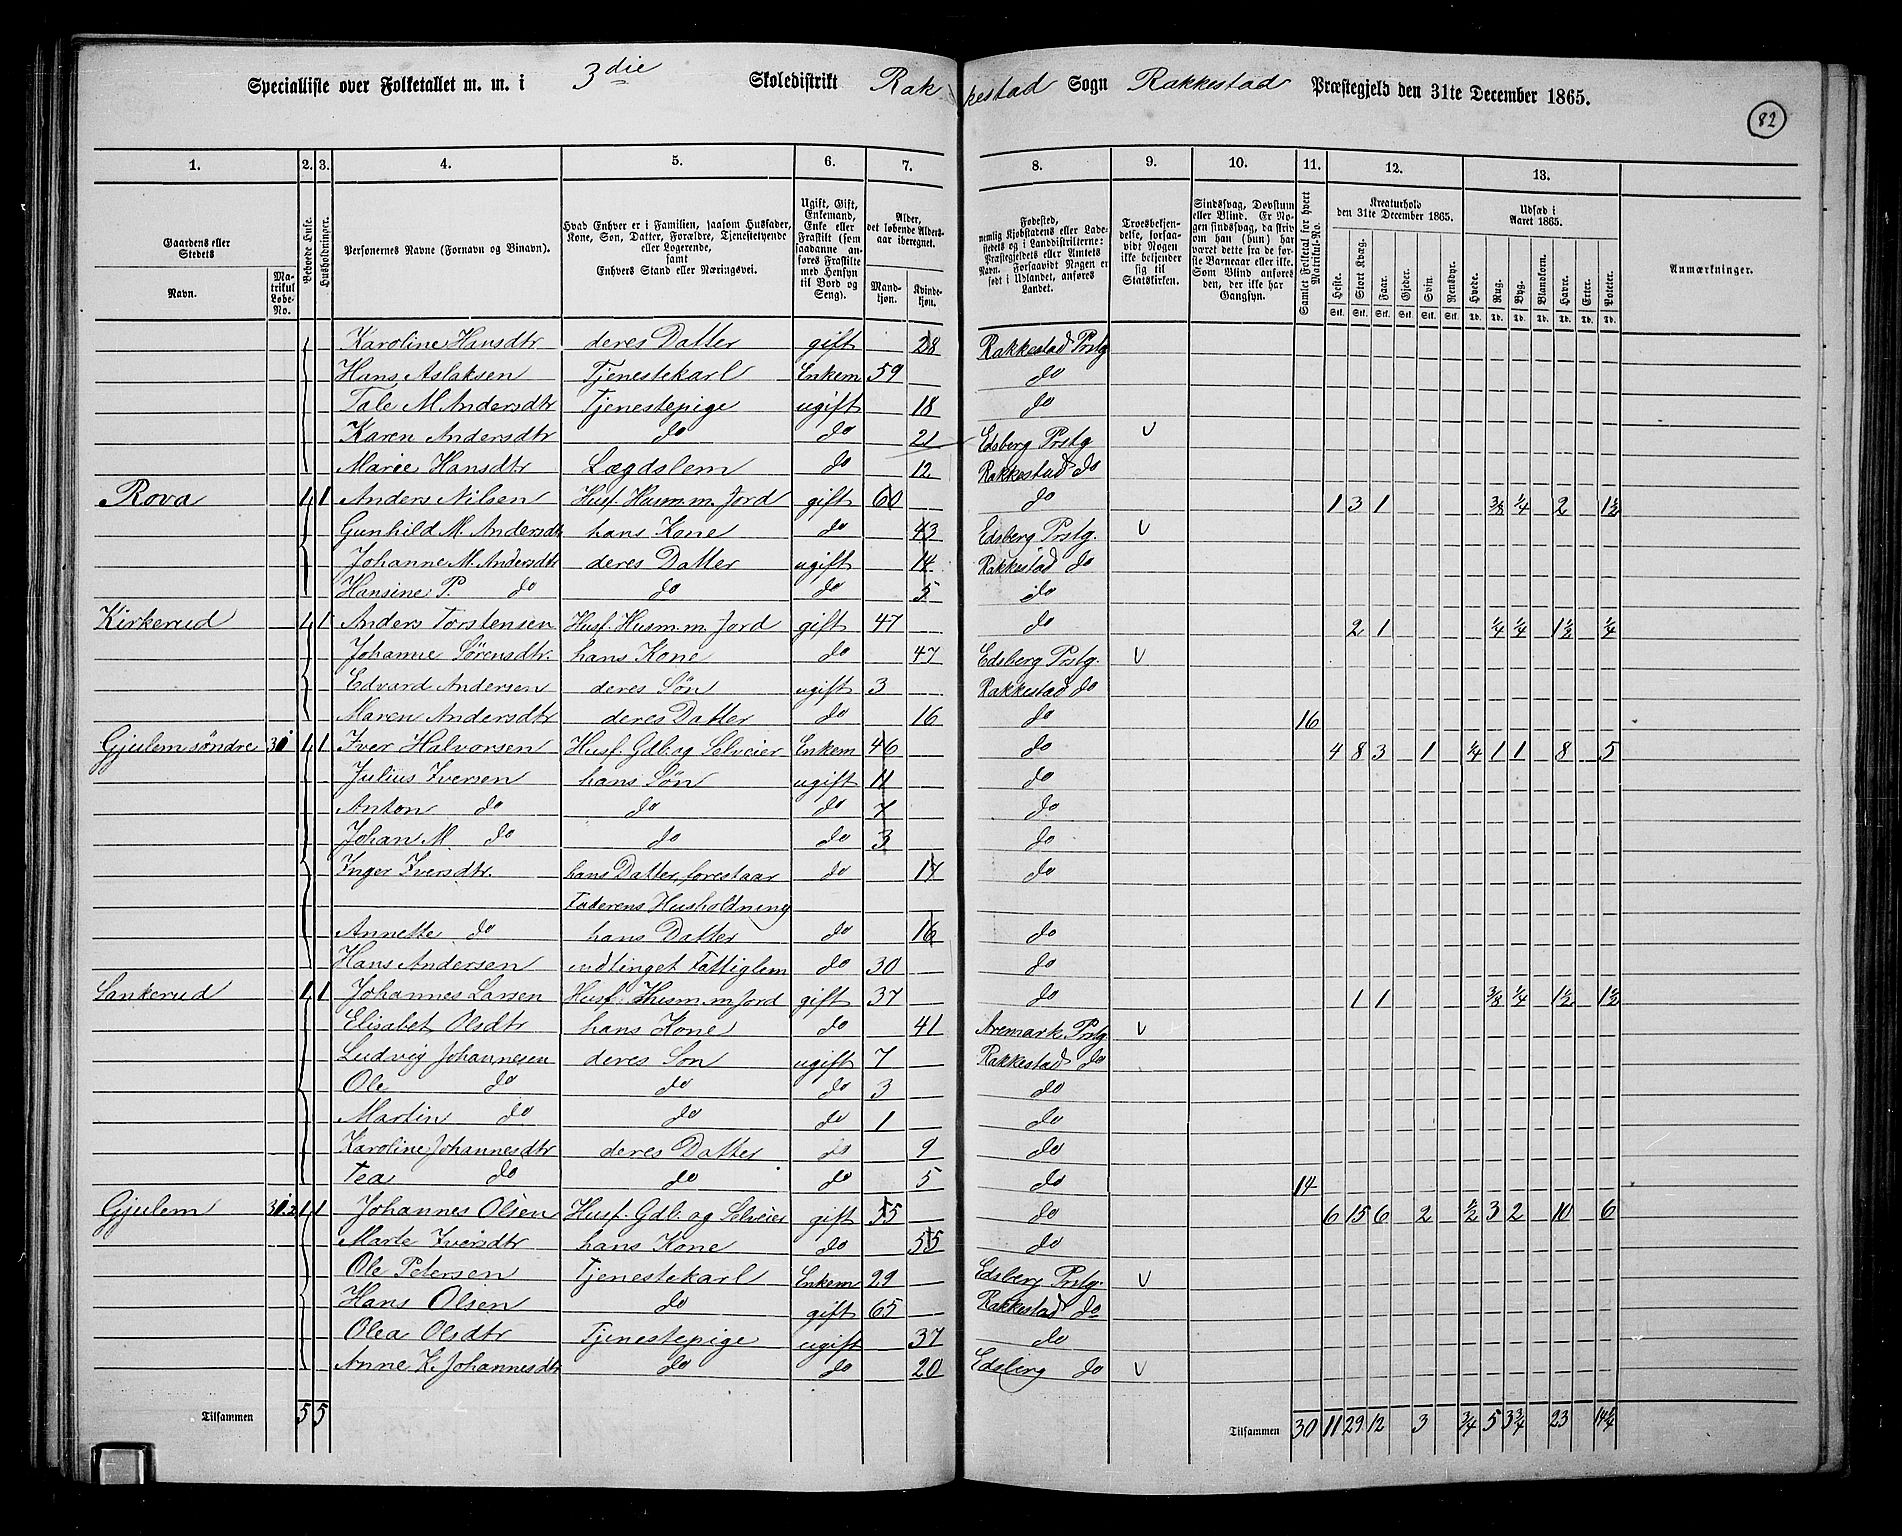 Specialliste over Folketallet m. m. i 3die Skoledistrikt Rakkestad Sogn Rakkestad Præstegjeld den 31te December 1865.
82
1. 2. 3. 4. 5. 6. 7. 8. 9. 10. 11. 12. 13.
Gaardens eller Stedets Navn. Matrikul Løbe-No. Beboede Huse. Husholdninger. Personernes Navne (Fornavn og Binavn). Hvad Enhver er i Familien, saasom Husfader, Kone, Søn, Datter, Forældre, Tjenestetyende eller Logerende, samt Enhvers Stand eller Næringsvei. Ugift, Gift, Enkemand, Enke eller Fraskilt (som saadanne anføres Fraskilte med Hensyn til Bord og Seng). Alder, det løbende Alders-aar iberegnet. Mandkjøn. Kvindekjøn. Fødested, nemlig Kjøbstadens eller Ladestedets og i Landdistrikterne: Præstegjeldets eller Amtets Navn. Forsaavidt Nogen er født i Udlandet, anføres Landet. Troesbekjendelse, forsaavidt Nogen ikke bekjender sig til Statskirken. Sindssvag, Døvstum eller Blind. Er Nogen sindssvag, da skriv om han (hun) har været dette fra de første Barneaar eller ikke. Som Blind anføres den, der ikke har Gangsyn. Samlet Folketal for hvert Matrikul-No. Kreaturhold den 31te December 1865. Heste. Stort Kvæg. Faar. Gjeder. Svin. Rensdyr. Udsæd i Aaret 1865. Hvede. Rug. Byg. Blandkorn. Havre. Erter. Poteter. Anmærkninger.
Karoline Hansdtr deres Datter gift 28 Rakkestad Prstg
Hans Aslaksen Tjenestekarl Enkem 59 do
Tale M Andersdtr Tjenestepige ugift 18 do
Karen Andersdtr do do 21 Edsberg Prstg
Marie Hansdtr Lægdslem do 12 Rakkestad do
Rova 1 1 Anders Nilsen Husf. Husm. m. Jord gift 60 do 1 3 1 3/8 1/4 2 1 1/2
Gunhild M. Andersdtr hans Kone do 43 Edsberg Prstg.
Johanne M. Andersdtr deres Datter ugift 14 Rakkestad do
Hansine P. do do do 5 do
Kirkerud 1 1 Anders Torstensen Husf. Husm. m Jord gift 47 do 2 1 1/4 1/4 1 1/2 1/4
Johanne Sørensdtr. hans Kone do 47 Edsberg Prstg.
Edvard Andersen deres Søn ugift 3 Rakkestad do
Maren Andersdtr deres Datter do 16 do 16
Gjulem søndre 1 1 Iver Halvorsen Husf. Gdb. og Selveier Enkem 46 do 4 8 3 1 1/4 1 1 8 5
Julius Iversen hans Søn ugift 11 do
Anton do do do 7 do
Johan M. do do do 3 do
Inger Iversdtr. hans Datter, forestaar do 17 do
Faderens Husholdning
Annette do hans Datter do 16 do
Hans Andersen indlinget Fattiglem do 30 do
Sankerud 1 1 Johannes Larsen Husf. Husm. m Jord gift 37 do 1 1 3/8 1/4 1 1/2 1 1/2
Elisabet Olsdtr hans Kone do 41 Aremark Prstg
Ludvig Johannesen deres Søn ugift 7 Rakkestad do
Ole do do do 3 do
Martin do do do 1 do
Karoline Johannesdtr deres Datter do 9 do
Tea do do do 5 do 14
Gjulem 1 1 Johannes Olsen Husf. Gdb. og Selveier gift 55 do 6 15 6 2 1/2 3 2 10 6
Marte Iversdtr hans Kone do 55 do
Ole Petersen Tjenestekarl Enkem 29 Edsberg Prstg.
Hans Olsen do gift 65 Rakkestad do
Olea Olsdtr Tjenestepige ugift 37 do
Anne K. Johannesdtr do do 20 Edsberg do
Tilsammen 5 5 Tilsammen 30 11 29 12 3 3/4 5 3 3/4 23 14 1/4